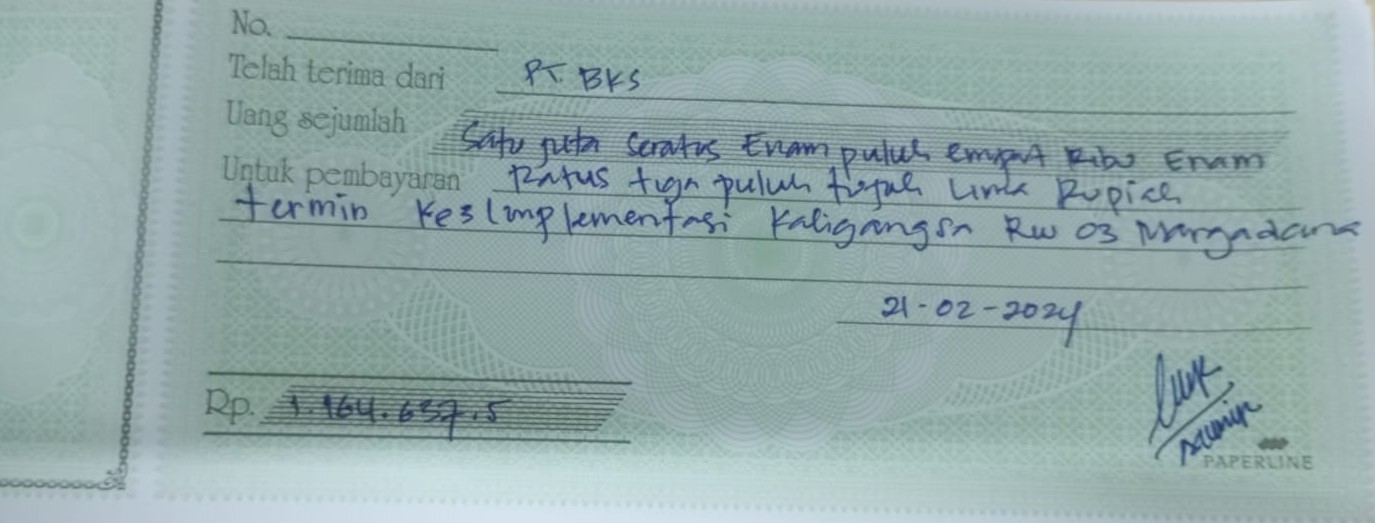 No.
Telah terima dari PT. BKS
Uang sejumlah Satu juta Seratus Enam puluh empat Ribu Enam
Untuk pembayaran Ratus tiga puluh tujuh Lima Rupiah
termin Ke 3 Implementasi Kaligangsa RW 03 Margadana
21-02-2024
Rp. 1.164.637.5
PAPERLINE